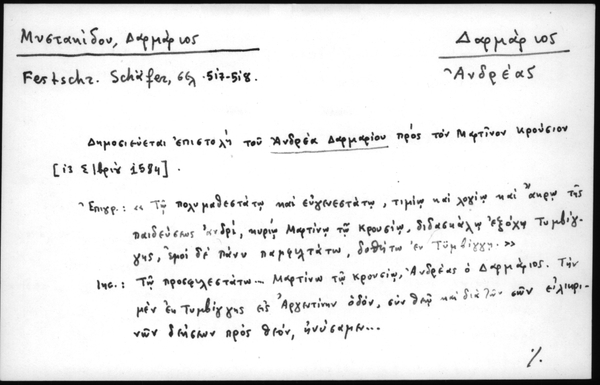 Μυστακίδου, Δαρμάριος
Δαρμάριος
Festschr. Schäfer, σελ. 517-518.
Ἀνδρέας
Δημοσιεύεται ἐπιστολὴ τοῦ Ἀνδρέα Δαρμαρίου πρὸς τὸν Μαρτῖνον Κρούσιον
[13 Σ/βρίου 1584].
Ἐπιγρ.: « Τῷ πολυμαθεστάτῳ καὶ εὐγενεστάτῳ, τιμίῳ καὶ λογίῳ καὶ ἄκρῳ τῆς
παιδεύσεως ἀνδρί, κυρίῳ Μαρτίνῳ τῷ Κρουσίῳ, διδασκάλῳ ἐξόχῳ Τυμβίγ-
γης, ἐμοὶ δὲ πάνυ παμφιλτάτῳ, δοθήτω ἐν Τυμβίγγῃ. »
Τῷ προσφιλεστάτῳ... Μαρτίνῳ τῷ Κρουσίῳ, Ἀνδρέας ὁ Δαρμάριος. Τὴν
μὲν ἐκ Τυμβίγγης εἰς Ἀργεντίνην ὁδόν, σὺν θεῷ καὶ διὰ τῶν σῶν εἰλικρι-
νῶν δεήσεων πρὸς θεόν, ἠνύσαμεν...
%